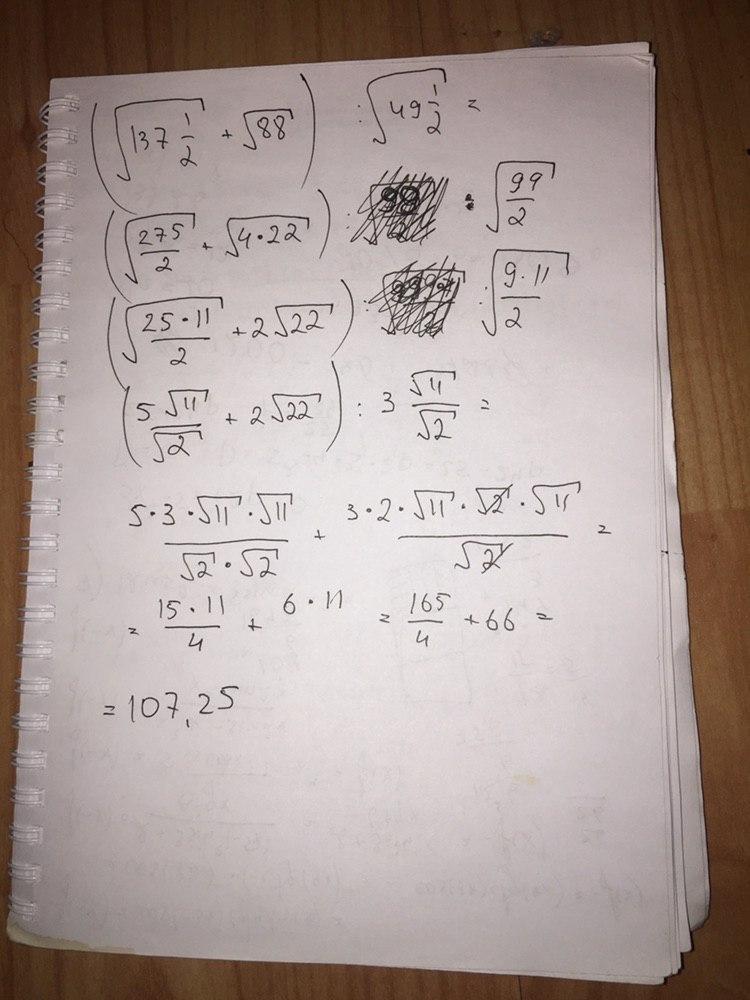 (√(137 1/2) + √88) : √(49 1/2) =
(√(275/2) + √(4·22)) : √(99/2)
(√(25·11/2) + 2√22) : √(9·11/2)
(5√11/√2 + 2√22) : 3 √11/√2 =
5·3·√11·√11/√2·√2 + 3·2·√11·√2·√11/√2 =
= 15·11/4 + 6·11 = 165/4 + 66 =
= 107,25